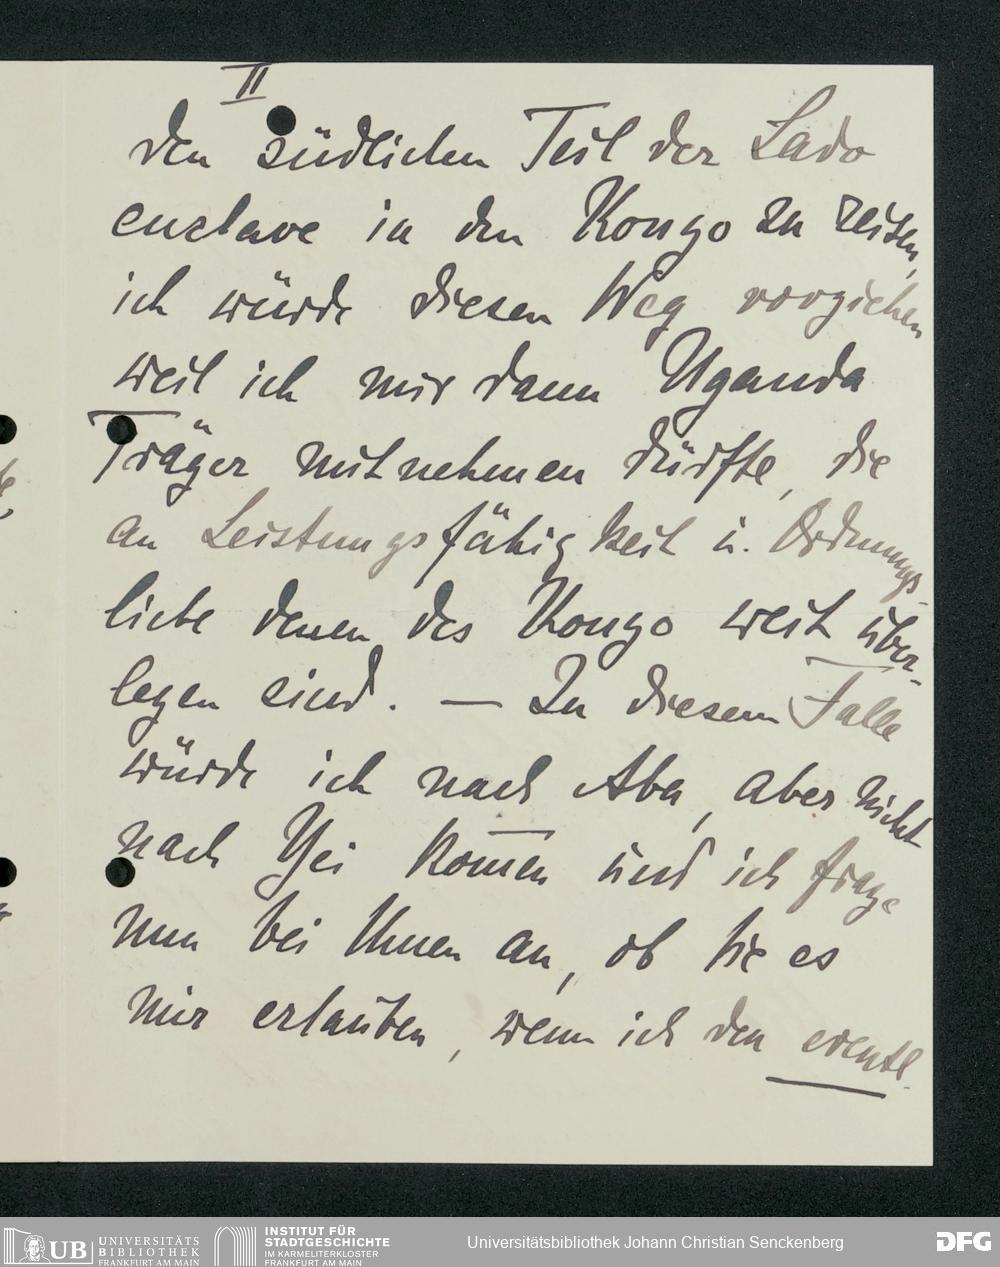 II
den südlichen Teil der Lado
enclave in den Kongo zu reisen,
ich würde diesen Weg vorziehen
weil ich mir dann Uganda
Träger mitnehmen dürfte, die
an Leistungsfähigkeit u. Ordnungs-
liebe denen des Kongo weit über-
legen sind. — In diesem Falle
würde ich nach Aba, aber nicht
nach Yei kom̄en und ich frage
nun bei Ihnen an, ob Sie es
mir erlauben, wenn ich den eventl.
UB UNIVERSITÄTS
BIBLIOTHEK
FRANKFURT AM MAIN
INSTITUT FÜR
STADTGESCHICHTE
IM KARMELITERKLOSTER
FRANKFURT AM MAIN
Universitätsbibliothek Johann Christian Senckenberg
DFG